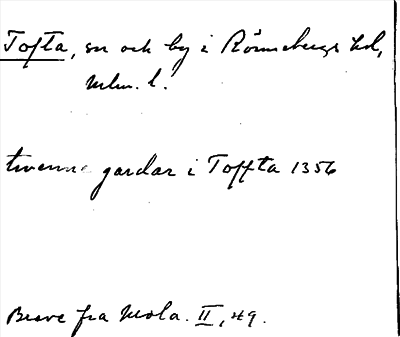 Tofta, sn och by i Rönnebergs hd,
Mlm. l.
twenne gardar i Toffta 1356
Breve fra Mola. II, 49.